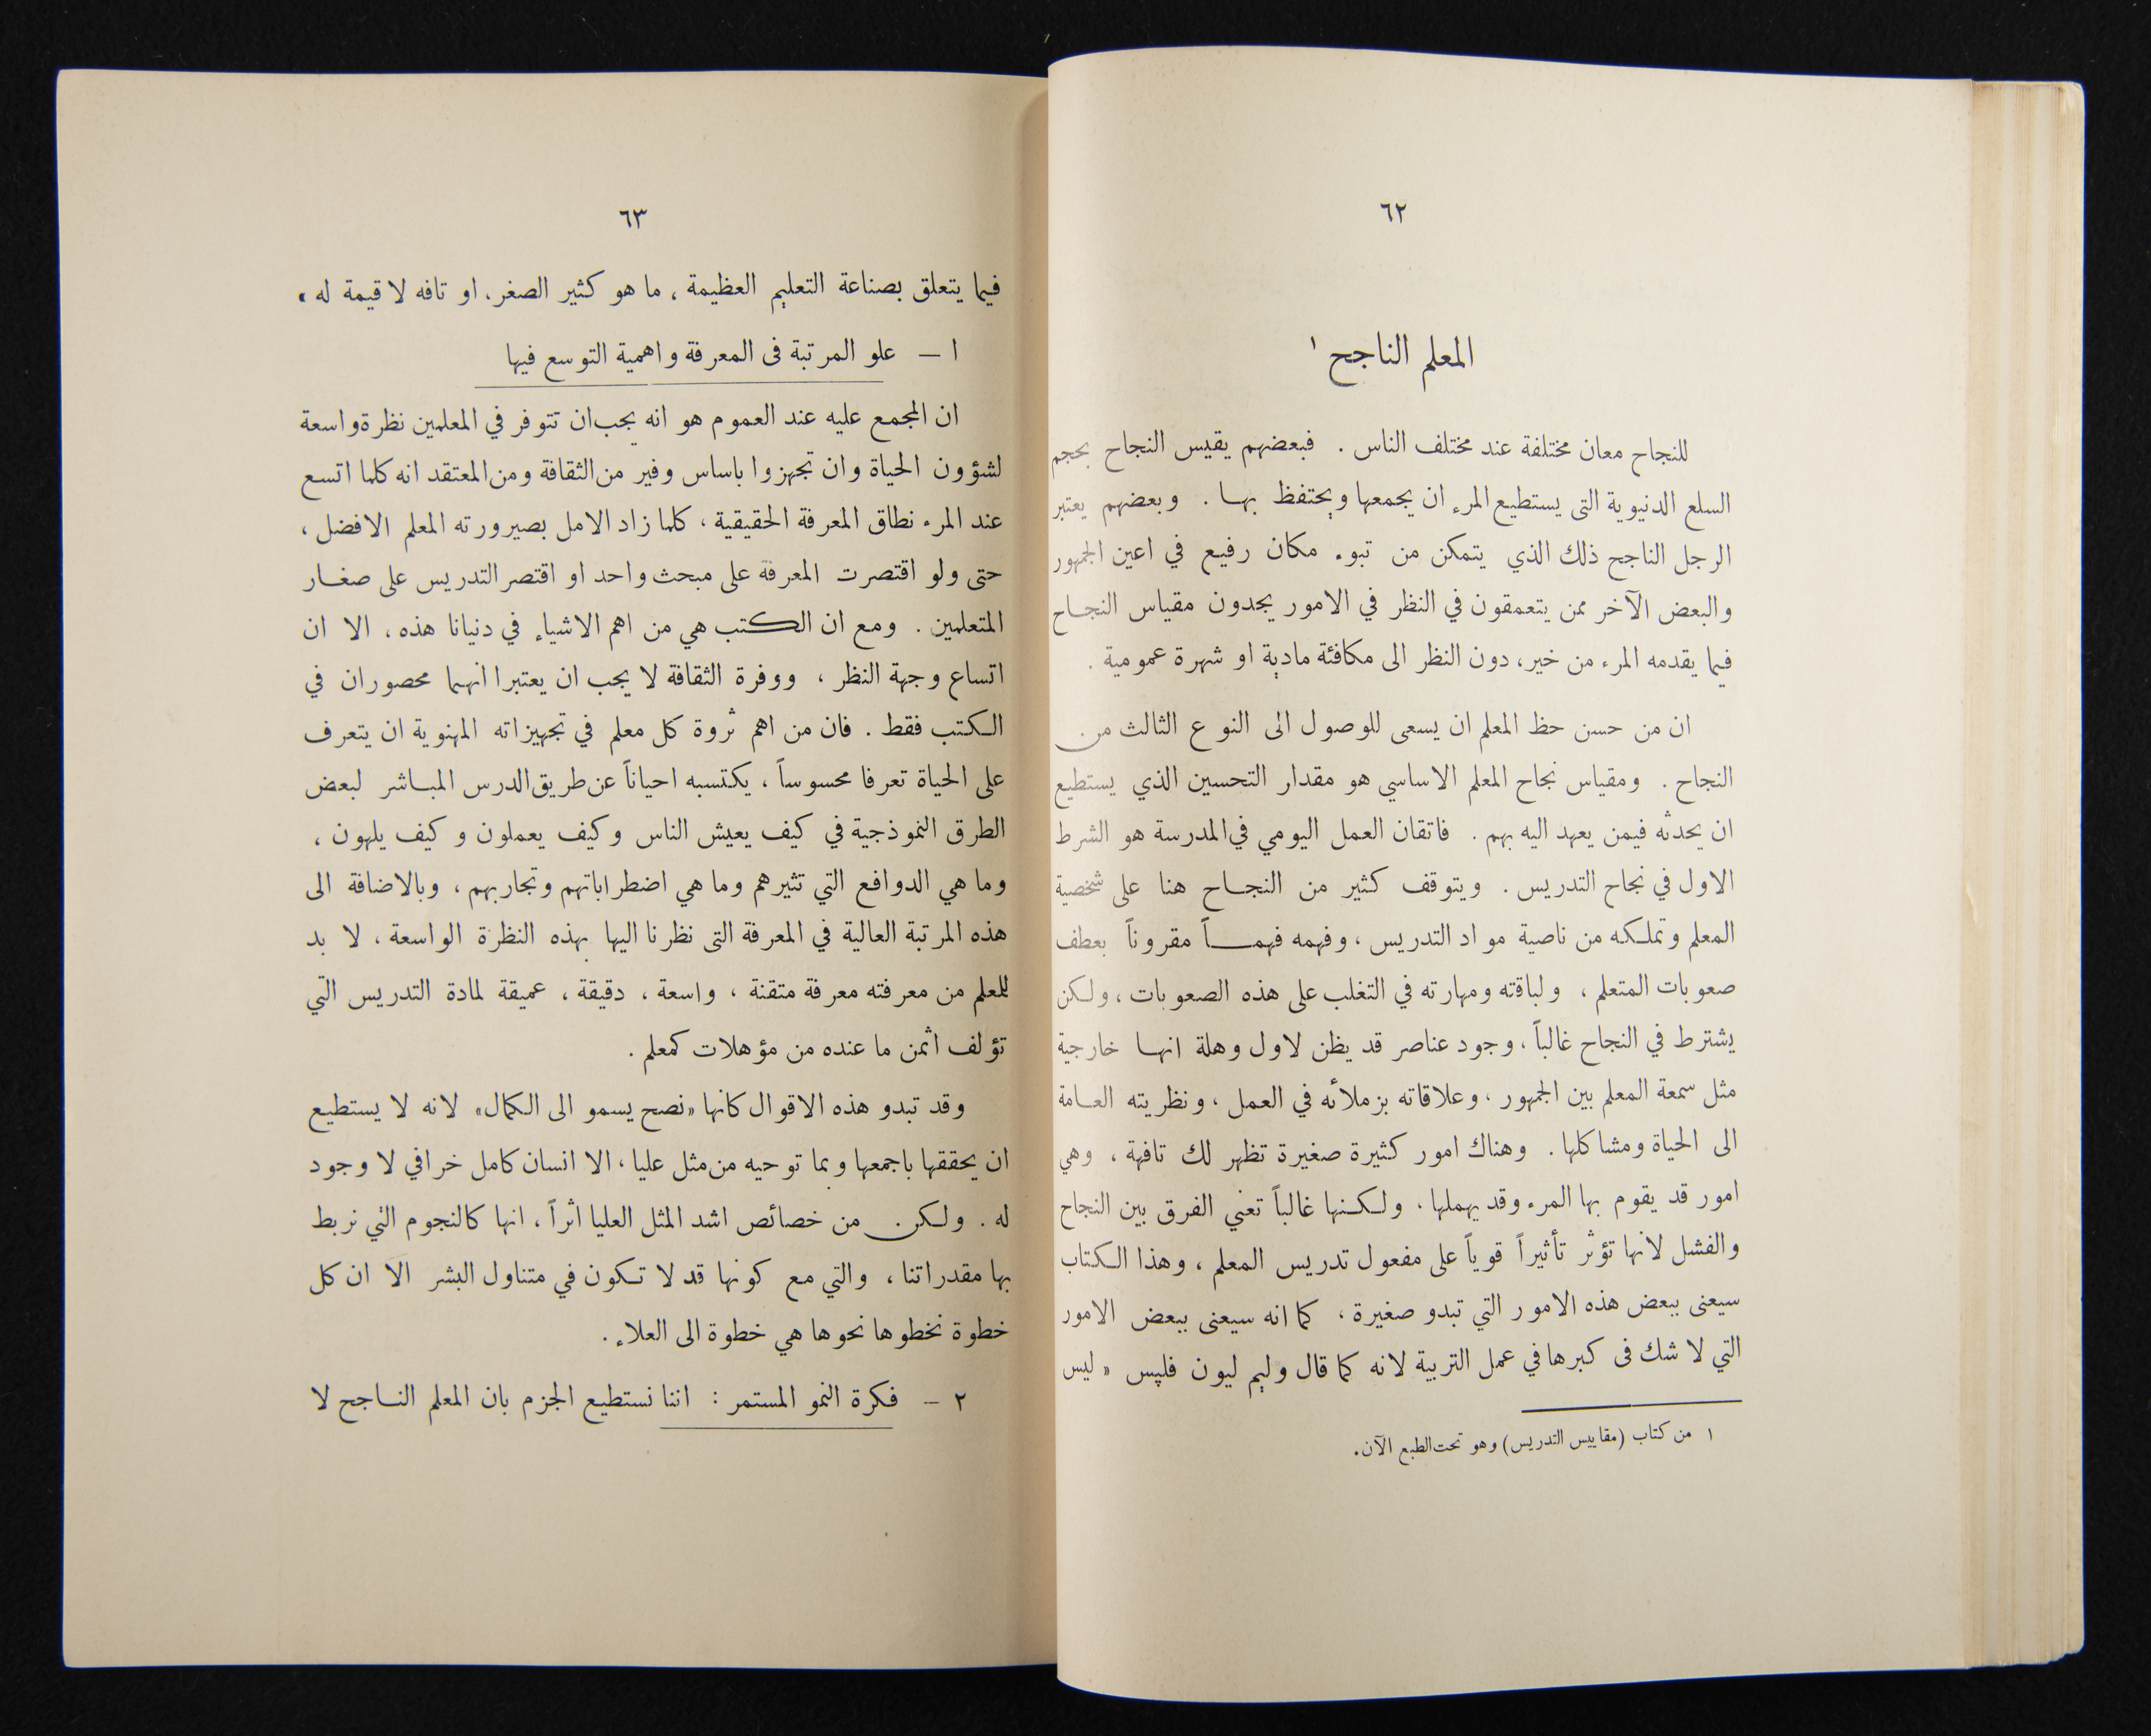 ٦٢
المعلم الناجح ١
للنجاح معان مختلفة عند مختلف الناس . فبعضهم يقيس النجاح بحجم
السلع الدنيوية التى يستطيع المرء ان يجمعها ويحتفظ بها . وبعضهم يعتبر
الرجل الناجح ذلك الذي يتمكن من تبوء مكان رفيع في اعين الجمهور
والبعض الآخر ممن يتعمقون في النظر في الامور يجدون مقياس النجاح
فيما يقدمه المرء من خير، دون النظر الى مكافئة مادية او شهرة عمومية .
ان من حسن حظ المعلم ان يسعى للوصول الى النوع الثالث من
النجاح . ومقياس نجاح المعلم الاساسي هو مقدار التحسين الذي يستطيع
ان يحدثه فيمن يعهد اليه بهم . فاتقان العمل اليومي في المدرسة هو الشرط
الاول في نجاح التدريس . ويتوقف كثير من النجاح هنا على شخصية
المعلم وتملكه من ناصية مواد التدريس ، وفهمه فهماً مقروناً بعطف
صعوبات المتعلم ، ولباقته ومهارته في التغلب على هذه الصعوبات ، ولكن
يشترط في النجاح غالباً ، وجود عناصر قد يظن لاول وهلة انها خارجية
مثل سمعة المعلم بين الجمهور ، وعلاقاته بزملائه في العمل ، ونظريته العامة
الى الحياة ومشاكلها . وهناك امور كثيرة صغيرة تظهر لك تافهة ، وهي
امور قد يقوم بها المرء وقد يهملها ، ولكنها غالباً تعني الفرق بين النجاح
والفشل لانها تؤثر تأثيراً قوياً على مفعول تدريس المعلم ، وهذا الكتاب
سيعنى ببعض هذه الامور التي تبدو صغيرة ، كما انه سيعنى ببعض الامور
التي لا شك فى كبرها في عمل التربية لانه كما قال وليم ليون فلپس « ليس
١ من كتاب (مقاييس التدريس) وهو تحت الطبع الآن.
٦٣
فيما يتعلق بصناعة التعليم العظيمة ، ما هو كثير الصغر، او تافه لا قيمة له »
١ – علو المرتبة فى المعرفة واهمية التوسع فيها
ان المجمع عليه عند العموم هو انه يجب ان تتوفر في المعلمين نظرة واسعة
لشؤون الحياة وان تجهزوا باساس وفير من الثقافة ومن المعتقد انه كلما اتسع
عند المرء نطاق المعرفة الحقيقية ، كلما زاد الامل بصيرورته المعلم الافضل ،
حتى ولو اقتصرت المعرفة على مبحث واحد او اقتصر التدريس على صغار
المتعلمين . ومع ان الكتب هي من اهم الاشياء في دنيانا هذه ، الا ان
اتساع وجهة النظر ، ووفرة الثقافة لا يجب ان يعتبرا انهما محصوران في
الكتب فقط . فان من اهم ثروة كل معلم في تجهيزاته المهنوية ان يتعرف
على الحياة تعرفا محسوساً ، يكتسبه احياناً عن طريق الدرس المباشر لبعض
الطرق النموذجية في كيف يعيش الناس وكيف يعملون وكيف يلهون ،
وما هي الدوافع التي تثيرهم وما هي اضطراباتهم وتجاربهم ، وبالاضافة الى
هذه المرتبة العالية في المعرفة التى نظرنا اليها بهذه النظرة الواسعة ، لا بد
للمعلم من معرفته معرفة متقنة ، واسعة ، دقيقة ، عميقة لمادة التدريس التي
تؤلف اثمن ما عنده من مؤهلات كمعلم .
وقد تبدو هذه الاقوال كانها «نصح يسمو الى الكمال» لانه لا يستطيع
ان يحققها باجمعها وبما توحيه من مثل عليا ، الا انسان كامل خرافي لا وجود
له . ولكن من خصائص اشد المثل العليا اثراً ، انها كالنجوم التي نربط
بها مقدراتنا ، والتي مع كونها قد لا تكون في متناول البشر الا ان كل
خطوة نخطوها نحوها هي خطوة الى العلاء .
٢ – فكرة النمو المستمر : اننا نستطيع الجزم بان المعلم الناجح لا